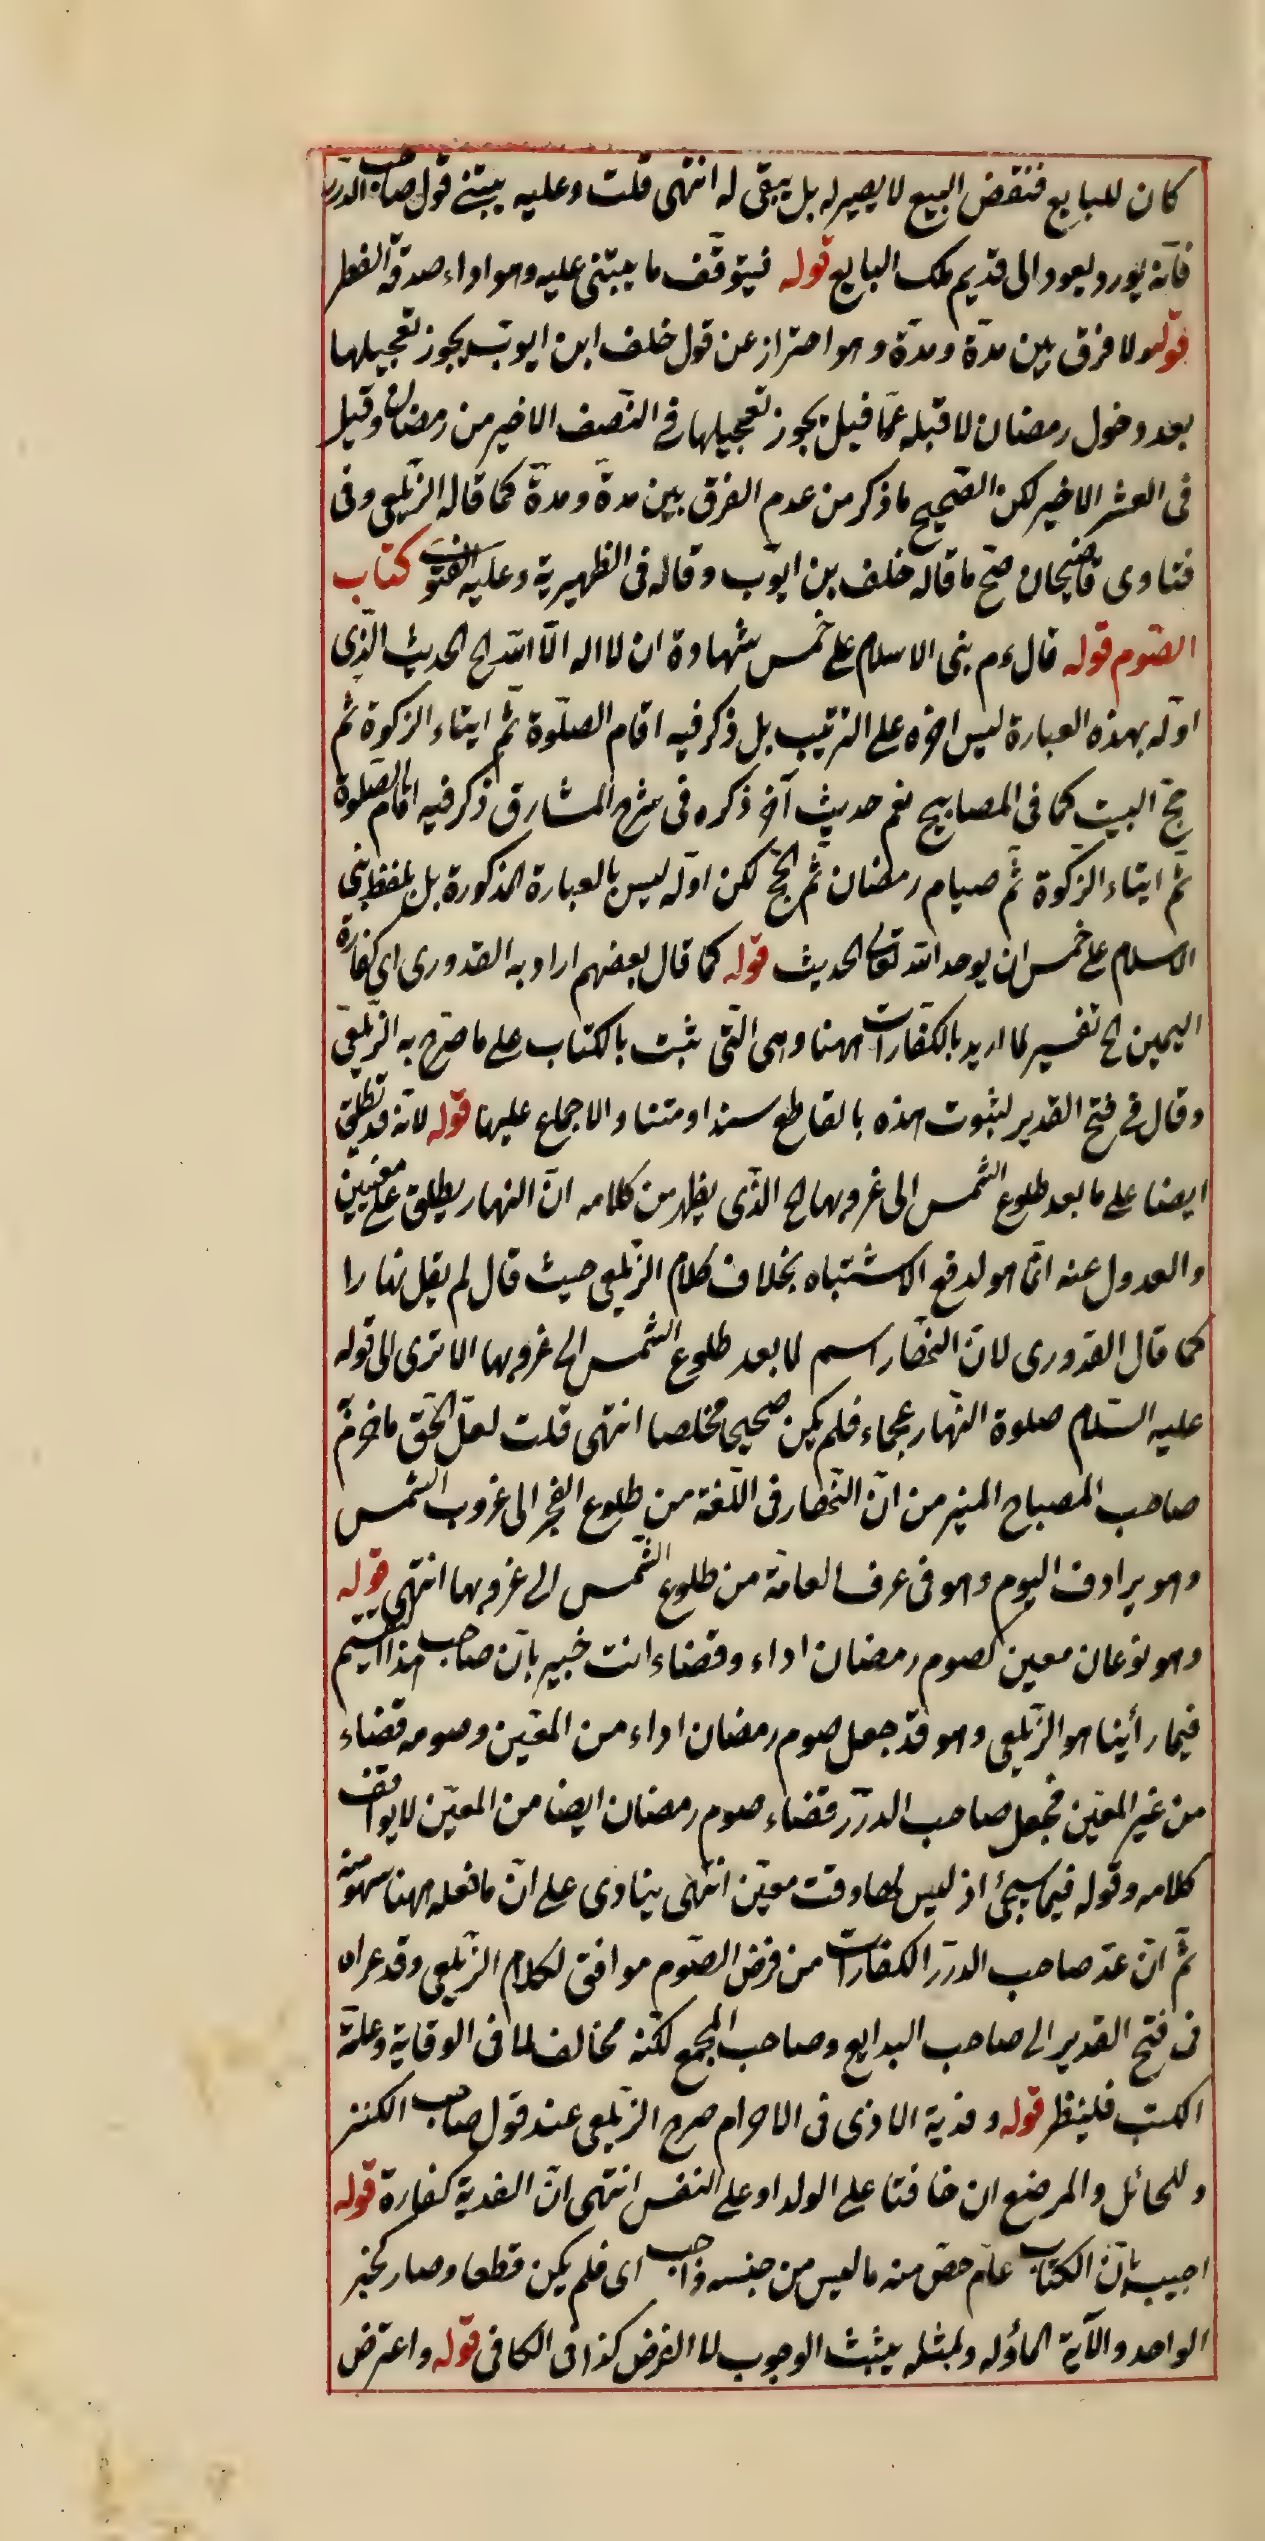 كان للبايع فنقض البيع لا يصير له بل يبقى له انتهى قلت وعليه يبتنى قول صاحب الدرر
فانه يورد ليعود الى قديم ملك البايع قوله فيتوقف ما يبتنى عليه وهو اداء صدقة الفطر
قوله ولا فرق بين مدة ومدة وهو احتراز عن قول خلف ابن ايوب يجوز تعجيلها
بعد دخول رمضان لا قبله عما قيل يجوز تعجيلها فى النصف الاخير من رمضان وقيل
فى العشر الاخير لكن الصحيح ما ذكر من عدم الفرق بين مدة ومدة كما قاله الزيلعى وفى
فتاوى قاضيخان صح ما قاله خلف بن ايوب وقاله فى الظهيرية وعليه الفتوى كتاب
الصوم قوله قال ءم بنى الاسلام على خمس شهادة ان لا اله الا الله الخ الحديث الذى
اوله بهذه العبارة ليس اخره على الترتيب بل ذكر فيه اقام الصلوة ثم ايتاء الزكوة ثم
حج البيت كما فى المصابيح نعم حديث آخر ذكره فى شرح المشارق ذكر فيه اقام الصلوة
ثم ايتاء الزكوة ثم صيام رمضان ثم الحج لكن اوله ليس بالعبارة المذكورة بل بلفظ بنى
الاسلام على خمس ان يوحد الله تعالى الحديث قوله كما قال بعضهم اراد به القدورى اى كفارة
اليمين الخ تفسير لما اريد بالكفارات ههنا وهى التى يثبت بالكتاب على ما صرح به الزيلعى
وقال فى فتح القدير لثبوت هذه بالقاطع سندا ومتنا والاجماع عليها قوله لانه قد يطلق
ايضا على ما بعد طلوع الشمس الى غروبها الخ الذى يظهر من كلامه ان النهار يطلق على معنيين
والعدول عنه انما هو لدفع الاشتباه بخلاف كلام الزيلعى حيث قال لم يقل نهارا
كما قال القدورى لان النهار اسم لما بعد طلوع الشمس الى غروبها الا ترى الى قوله
عليه السلام صلوة النهار عجماء فلم يكن صحيحا مخلصا انتهى قلت لعل الحق ما
صاحب المصباح المنير من ان النهار فى اللغة من طلوع الفجر الى غروب الشمس
وهو يرادف اليوم وهو فى عرف العامة من طلوع الشمس الى غروبها انتهى قوله
وهو نوعان معين كصوم رمضان اداء وقضاء انت خبير بان صاحب هذا التقسيم
فيما رأينا هو الزيلعى وهو قد جعل صوم رمضان اداء من المعين وصومه قضاء
من غير المعين فجعل صاحب الدرر قضاء صوم رمضان ايضا من المعين لا يوافق
كلامه وقوله فيما سيجئ اذ ليس لها وقت معين انتهى ينادى على ان ما فعله ههنا سهو منه
ثم ان عد صاحب الدرر الكفارات من فرض الصوم موافق لكلام الزيلعى وقد عزاه
فى فتح القدير الى صاحب البدايع وصاحب المجمع لكنه مخالف لما فى الوقاية وعامة
الكتب فلينظر قوله وفدية الاذى فى الاحرام صرح الزيلعى عند قول صاحب الكنز
وللحائل والمرضع ان خافتا على الولد او على النفس انتهى ان الفدية كفارة قوله
اجيب بان الكتاب عام خص منه ما ليس من جنسه واجب اى فلم يكن قطعا وصار كخبر
الواحد والآية المأوله وبمثله يثبت الوجوب لا الفرض كذا فى الكافى قوله واعترض